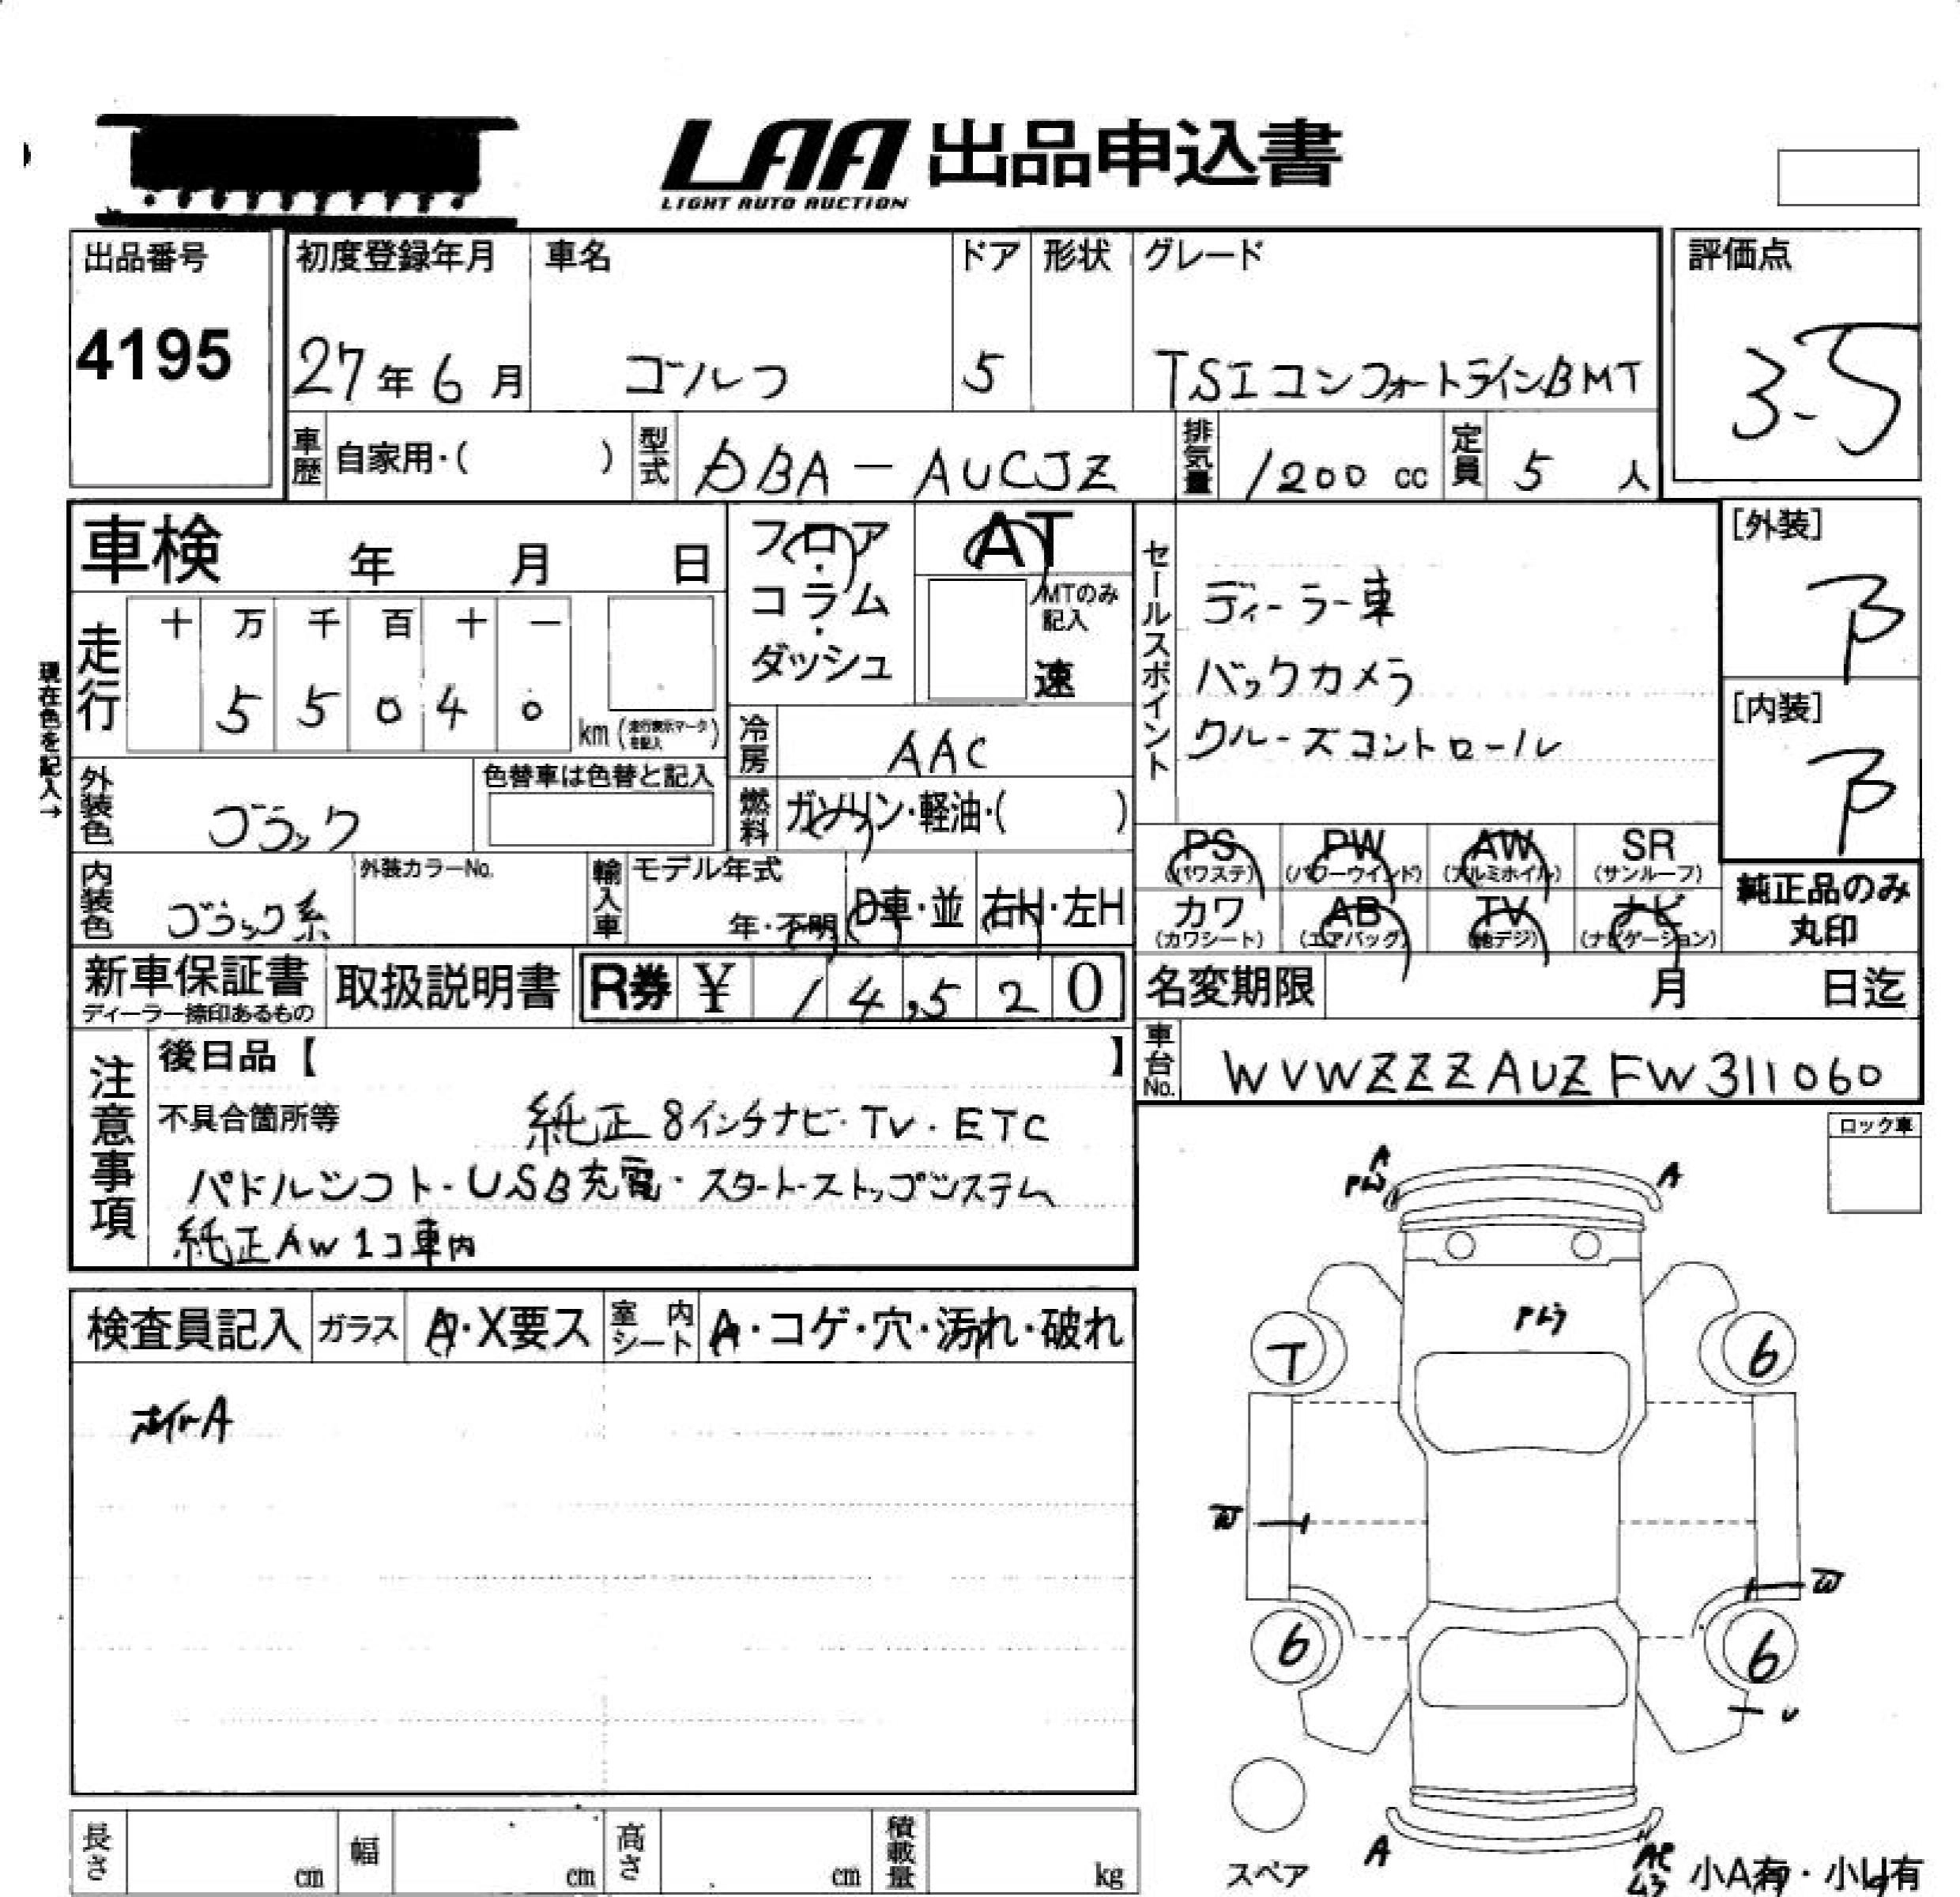 LAA 出品申込書
LIGHT AUTO AUCTION
出品番号 初度登録年月 車名 ドア 形状 グレード 評価点
4195 27年6月 ゴルフ 5 TSIコンフォートラインBMT 3.5
車歴 自家用・( ) 型式 DBA-AUCJZ 排気量 1200 cc 定員 5 人
車検 年 月 日
フロア・コラム・ダッシュ
AT
MTのみ記入
速
セールスポイント
ディーラー車
バックカメラ
クルーズコントロール
[外装]
B
[内装]
B
走行 十 万 千 百 十 一
5 5 0 4 0 km (走行表示マークを記入)
現在色を記入→
冷房 AAC
外装色 ブラック 色替車は色替と記入
燃料 ガソリン・軽油・( )
内装色 ブラック系 外装カラーNo.
輸入車 モデル年式 年・不明 D車・並 右H・左H
PS (パワステ) PW (パワーウインド) AW (アルミホイル) SR (サンルーフ)
カワ (カワシート) AB (エアバッグ) TV (地デジ) ナビ (ナビゲーション)
純正品のみ
丸印
新車保証書 取扱説明書 R券 ¥ 14,520
ディーラー捺印あるもの
名変期限 月 日迄
車台No. WVWZZZAUZFW311060
注意事項
後日品【 】
不具合箇所等 純正8インチナビ・TV・ETC
パドルシフト・USB充電・スタートストップシステム
純正AW1コ車内
ロック車
検査員記入 ガラス A・X要ス 室内シート A・コゲ・穴・汚れ・破れ
ホイルA
A
A
T
6
W
W
6
6
U
A
スペア
小A有・小U有
長さ cm 幅 cm 高さ cm 積載量 kg